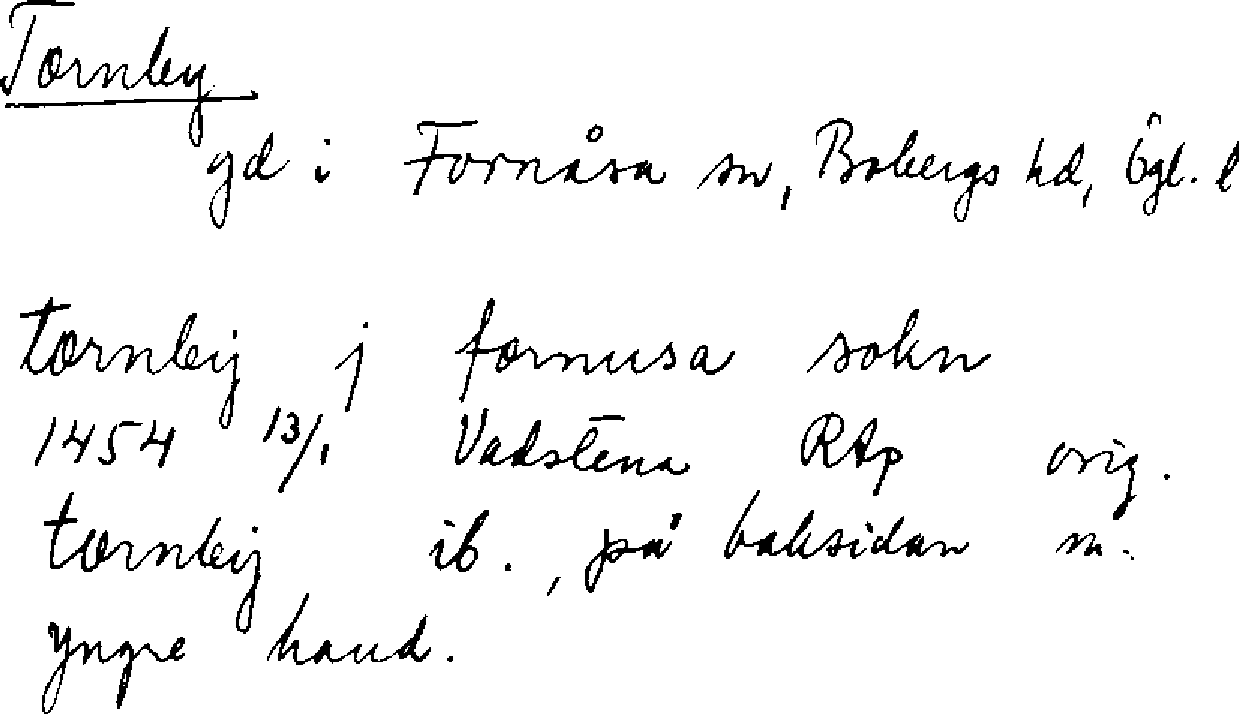 Tornby
gd i Fornåsa sn, Bobergs hd, Ögl. l
tornbij j fornusa sokn
1454 13/1 Vadstena RAp orig.
tornbij ib., på baksidan m.
yngre hand.